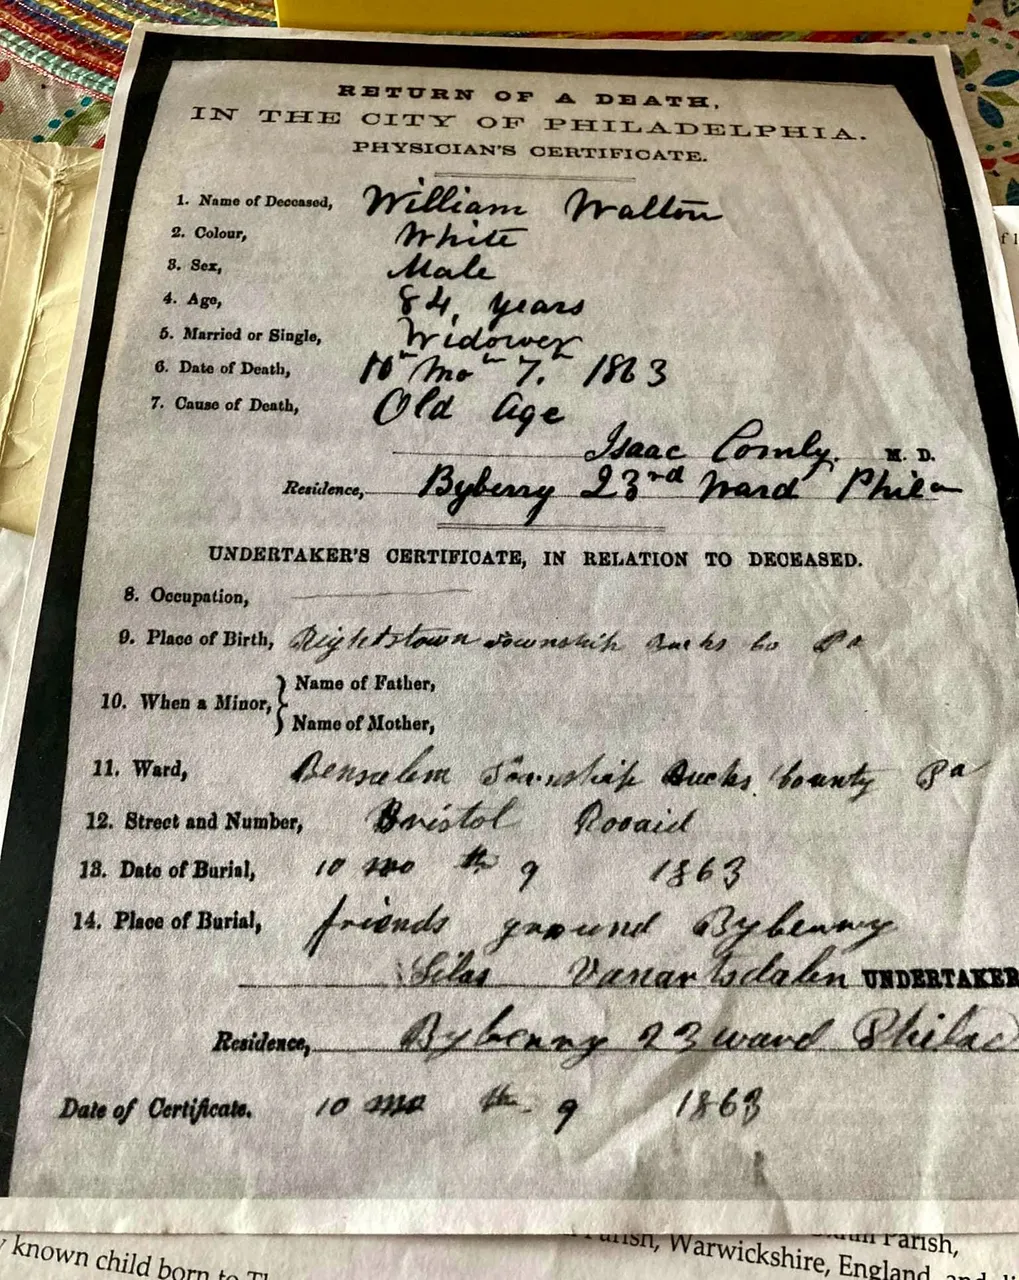 RETURN OF A DEATH,
IN THE CITY OF PHILADELPHIA.
PHYSICIAN'S CERTIFICATE.
1. Name of Deceased, William Walton
2. Colour, White
3. Sex, Male
4. Age, 84, years
5. Married or Single, Widower
6. Date of Death, 10th mo 7th, 1863
7. Cause of Death, Old Age
Isaac Comly, M. D.
Residence, Byberry 23rd Ward Phila
UNDERTAKER'S CERTIFICATE, IN RELATION TO DECEASED.
8. Occupation,
9. Place of Birth, township Bucks Co Pa
10. When a Minor,
Name of Father,
Name of Mother,
11. Ward, Bensalem Township Bucks County Pa
12. Street and Number, Bristol Rooaid
13. Date of Burial, 10 mo th 9 1863
14. Place of Burial, friends ground Byberry
Silas Vanartsdalen UNDERTAKER
Residence, Byberry 23 ward Philad
Date of Certificate. 10 mo th 9 1863
known child born to
Parish,
Parish, Warwickshire, England, and